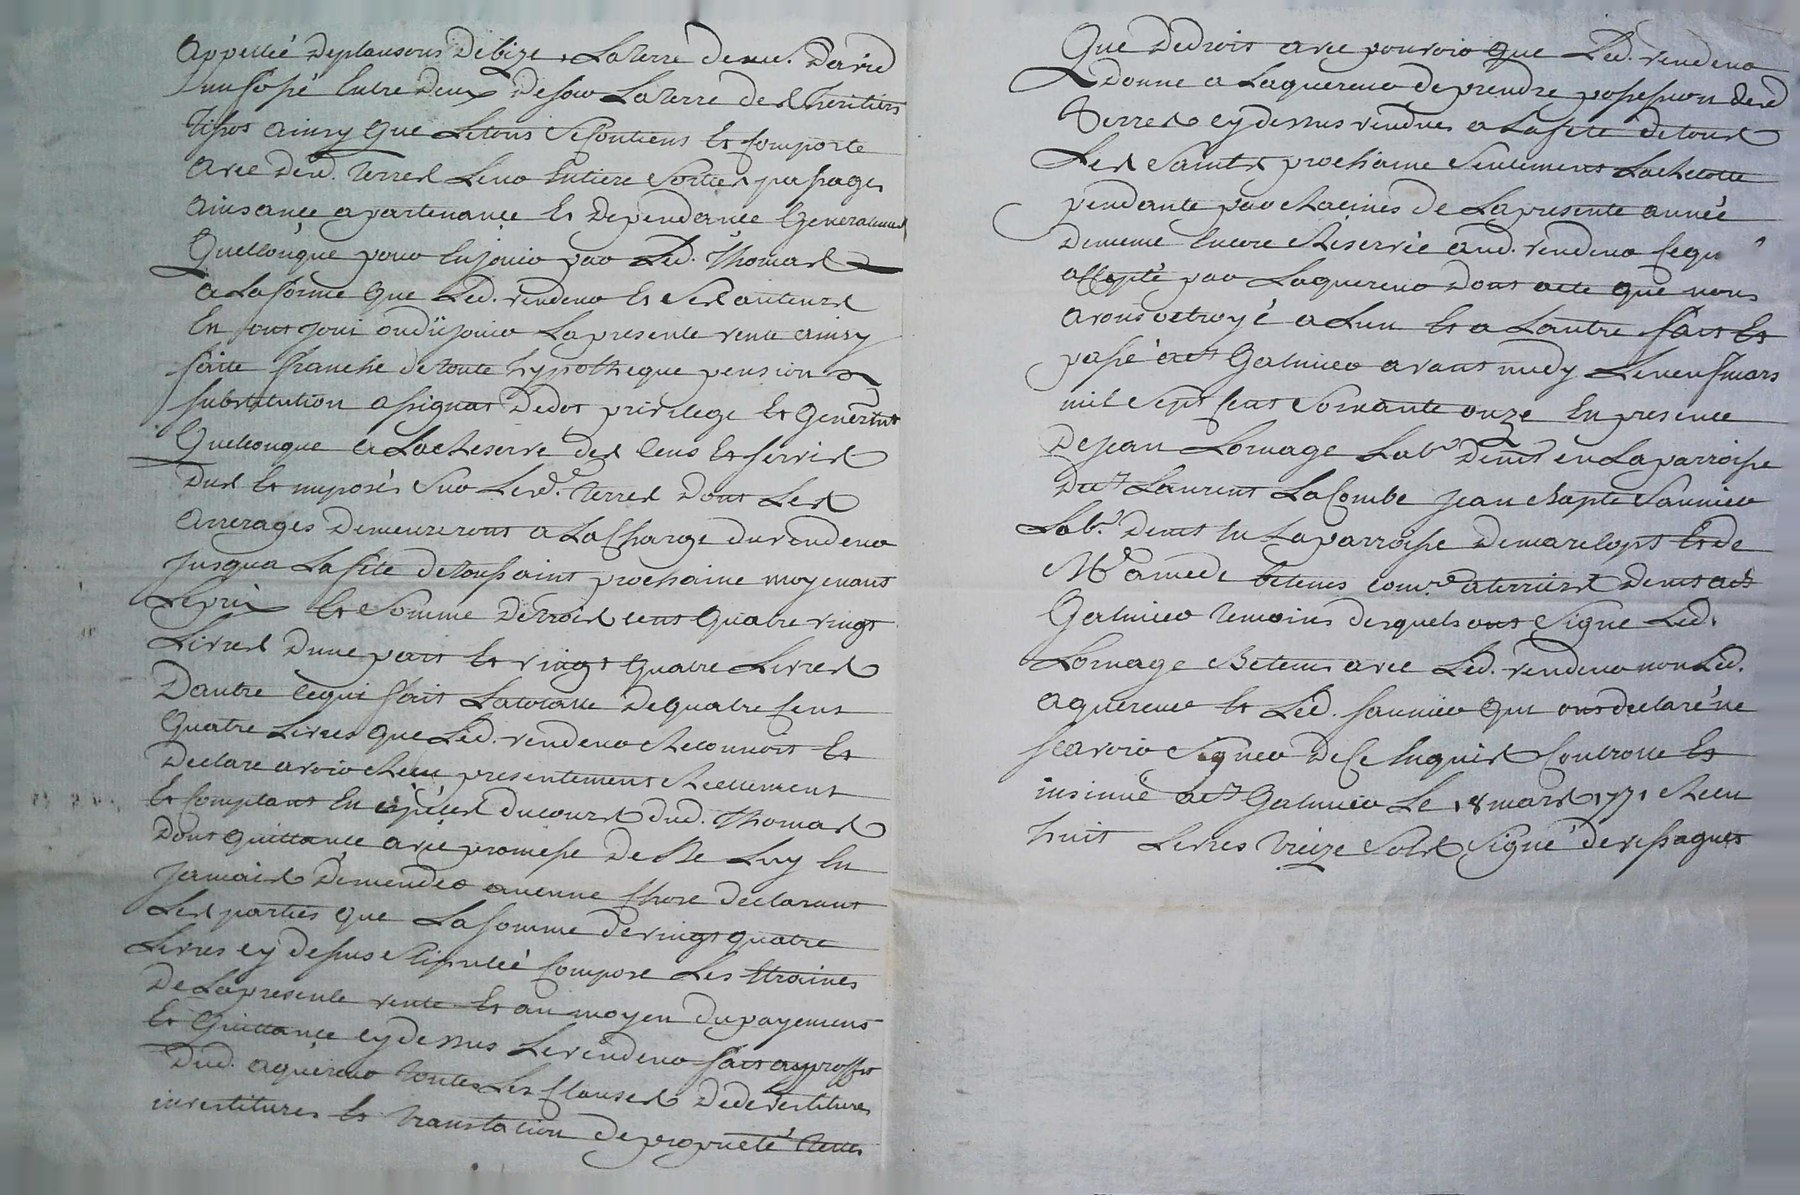 appellée deplansons debize, La terre de me. David
un fossé Entre deux de soir La terre des heritiers
tissot ainsy que Le tout se Contient Et Comporte
avec desd. terres Leur Entiere Sorties passages
aisance apartenance Et Dependance Generalement
Quelconque pour En jouir par Led. Thomas
a La forme que Led. vendeur Et Ses auteurs
En ont joui ou dû jouir La presente vente ainsy
faite franche de toute hypotheque pension
substitution assignat de dot privilege Et Generalmt
Quelconque a La Reserve des Cens Et servis
Dus Et imposés Sur Lesd. terres Dont Les
arrerages Demeureront a La Charge du vendeur
jusqua La fete de toussaint prochaine moyenant
Le prix Et Somme de trois cent quatre vingt
Livres Dune part Et vingt quatre Livres
Dautre ce qui fait La totalle De quatre Cent
quatre Livres que Led. vendeur Reconnoit Et
Declare avoir Reçu presentement Reellement
Et Comptant En espéces du cours dud. Thomas
Dont quittance avec promesse De ne Luy En
jamais Demender aucune Chose declarant
Les parties que La somme de vingt quatre
Livres cy dessus Stipulée Compose Les Etraines
De La presente vente Et au moyen du payement
Et Quittance cy dessus Le vendeur fait au proffit
Dud. aquéreur toutes Les Clauses De devestitures
investitures Et translation de proprieté telles
Que De droit avec pouvoir que Led. vendeur
donne a Laquereur de prendre possession desd
terres cy dessus vendues a La fete de tous
Les Saints prochaine Seulement La Recolte
pendante par Racines de La presente année
demeure Encore Réservée aud. vendeur Ce qui
accepté par Laquereur Dont acte que nous
avons octroyé a Lun Et a Lautre fait Et
passé a St Galmier avant midy Le neuf mars
mil Sept Cent Soixante onze En presence
De jean Lornage Labr Demt en La parroisse
De St Laurent La Combe jean Bapte Saunier
Labr. Demt En La parroisse de marclopt Et de
Me amede betems comre a terriers Demt a St
Galmier temoins desquels ont Signe Led.
Lornage Betems avec Led. vendeur non Led.
aquereur Et Led. saunier qui ont declaré ne
scavoir Signer De Ce Enquis Controllé Et
insinué a St Galmier Le 18 mars 1771 Reçu
huit Livres treize Sols Signé devissaguet